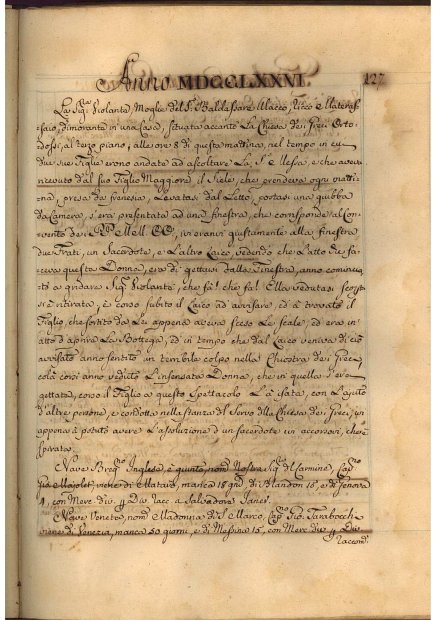 Anno MDCCLXXXVI. 127
La Sig.ra Violante, Moglie del S.r Baldassare Macco, Ricco e Materas-
saio, dimorante in una casa, situata accanto La Chiesa dei Greci Orto-
dossi, al terzo piano, alle ore 8 di questa mattina, nel tempo in cui
due sue Figlie erono andate ad ascoltare La S.a Messa, e che aveva
ricevuto dal suo Figlio Maggiore il Siele, che prendeva ogni matti-
na, presa da frenesia, Levatasi dal Letto, portasi una giubba
da Camera, s'era presentata ad una finestra, che corrisponde al Con-
vento dei; ivi eranvi giustamente alla finestra
due Frati, un Sacerdote, e L'altro Laico, vedendo che L'atto che fa-
ceva questa Donna, era di gettarsi dalla Finestra, anno comincia-
to a gridare Sig.ra Violante, che fà! che fà! Ella vedutasi scop.
s'è ritirata, è corso subito il Laico ad avvisare, ed à trovato il
Figlio, che sortito da Lei appena aveva sceso Le scale, ed era in
atto d'aprire La Bottega, ed in tempo che dal Laico veniva di ciò
avvisato anno sentito un terribile colpo nella Chiostra dei Greci,
colà corsi anno veduto L'insensata Donna, che in quella s'era
gettata, corso il Figlio a questo Spettacolo L'à alsata, con L'ajuto
d'altre persone, e condotta nella stanza del Servo della Chiesa dei Greci, ivi
appena à potuto avere L'assoluzione d'un sacerdote ivi accorsovi, che è
spirata.
Nave Breq.no Inglese, è giunto, nom.o Nostra Sig.ra del Carmine, Cap.o
viene di Mataro, manca 18 gni, di Blandon 16, e di Genova
4, con Merc. div. p Div. Racc. a Salvadore Janer.
Nave Veneta, nom.a Madonna di S. Marco, Cap.o Gio. Tarabocch-
viene di Venezia, manca 50 giorni, e di Messina 15, con Merc. div. p Div.
Raccom.